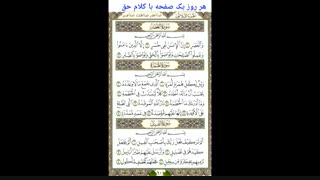 هر روز یک صفحه با کلام حق
سورة العصر
بسم الله الرحمن الرحیم
والعصر ان الانسان لفی خسر الا الذین ءامنوا
وعملوا الصالحات وتواصوا بالحق وتواصوا بالصبر
سورة الهمزة
بسم الله الرحمن الرحیم
ویل لکل همزة لمزة الذی جمع مالا وعدده
یحسب ان ماله اخلده کلا لینبذن فی الحطمة
وما ادراک ما الحطمة نار الله الموقدة التی تطلع
علی الافئدة انها علیهم مؤصدة فی عمد ممددة
سورة الفیل
بسم الله الرحمن الرحیم
الم تر کیف فعل ربک باصحاب الفیل الم یجعل
کیدهم فی تضلیل وارسل علیهم طیرا ابابیل
ترمیهم بحجارة من سجیل فجعلهم کعصف مأکول